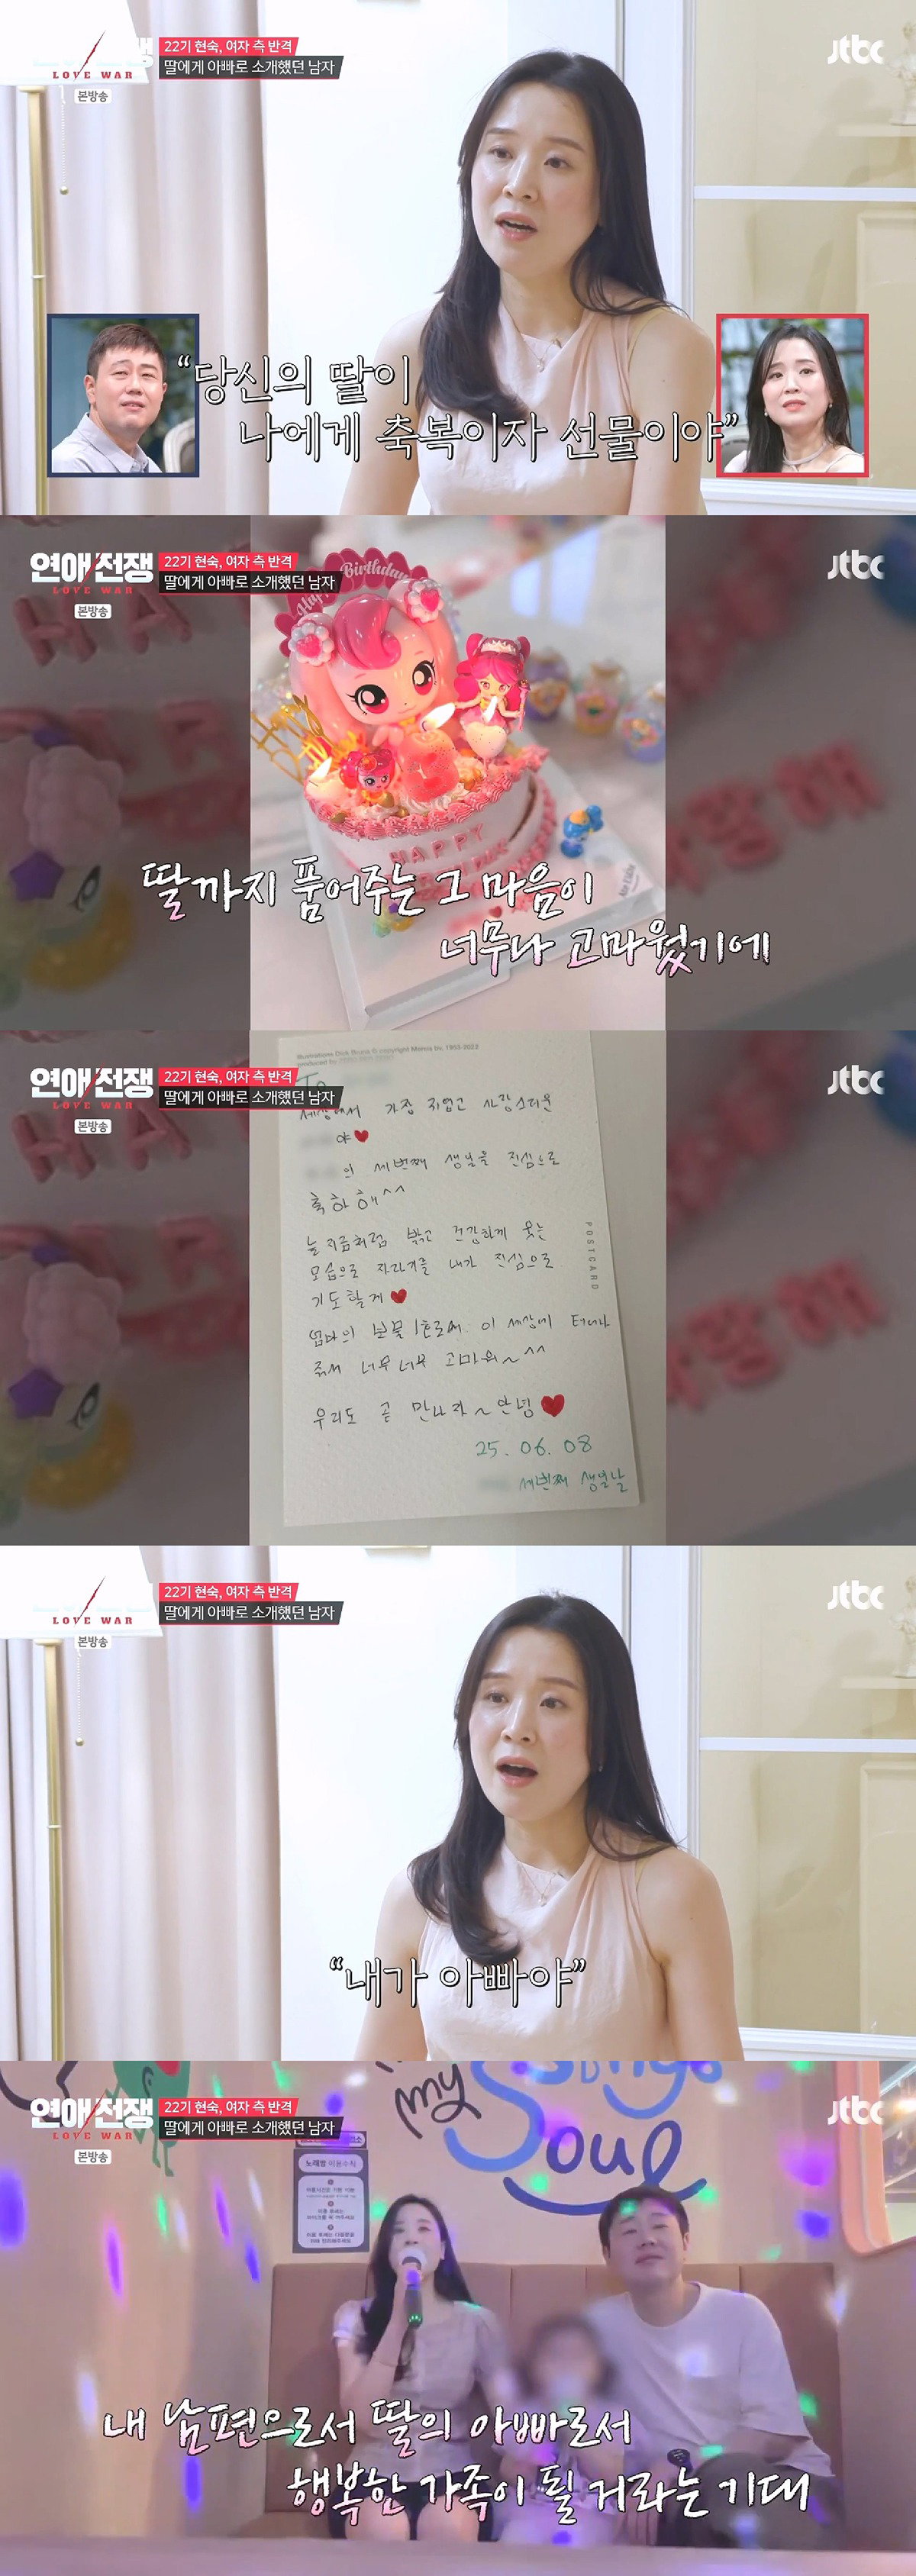 LOVE WAR
본방송
22기 현숙, 여자 측 반격
딸에게 아빠로 소개했던 남자
jtbc
“당신의 딸이
나에게 축복이자 선물이야”
연애/전쟁
LOVE WAR
본방송
22기 현숙, 여자 측 반격
딸에게 아빠로 소개했던 남자
jtbc
Happy Birthday
HAPPY
딸까지 품어주는 그 마음이
너무나 고마웠기에
연애/전쟁
LOVE WAR
본방송
22기 현숙, 여자 측 반격
딸에게 아빠로 소개했던 남자
jtbc
Illustrations Dick Bruna © copyright Mercis bv, 1953-2023
produced by
To
세상에서 가장 귀엽고 사랑스러운
야♥
의 세번째 생일을 진심으로
축하해^^
늘 지금처럼 밝고 건강하게 웃는
모습으로 자라기를 내가 진심으로
기도할게♥
엄마의 보물 1호로써 이 세상에 태어나
줘서 너무너무 고마워~^^
우리도 곧 만나자~안녕♥
25. 06. 08
세번째 생일날
POSTCARD
LOVE WAR
본방송
22기 현숙, 여자 측 반격
딸에게 아빠로 소개했던 남자
jtbc
“내가 아빠야”
연애/전쟁
LOVE WAR
본방송
22기 현숙, 여자 측 반격
딸에게 아빠로 소개했던 남자
jtbc
my
Soul
노래방 이용수칙
내 남편으로서 딸의 아빠로서
행복한 가족이 될 거라는 기대